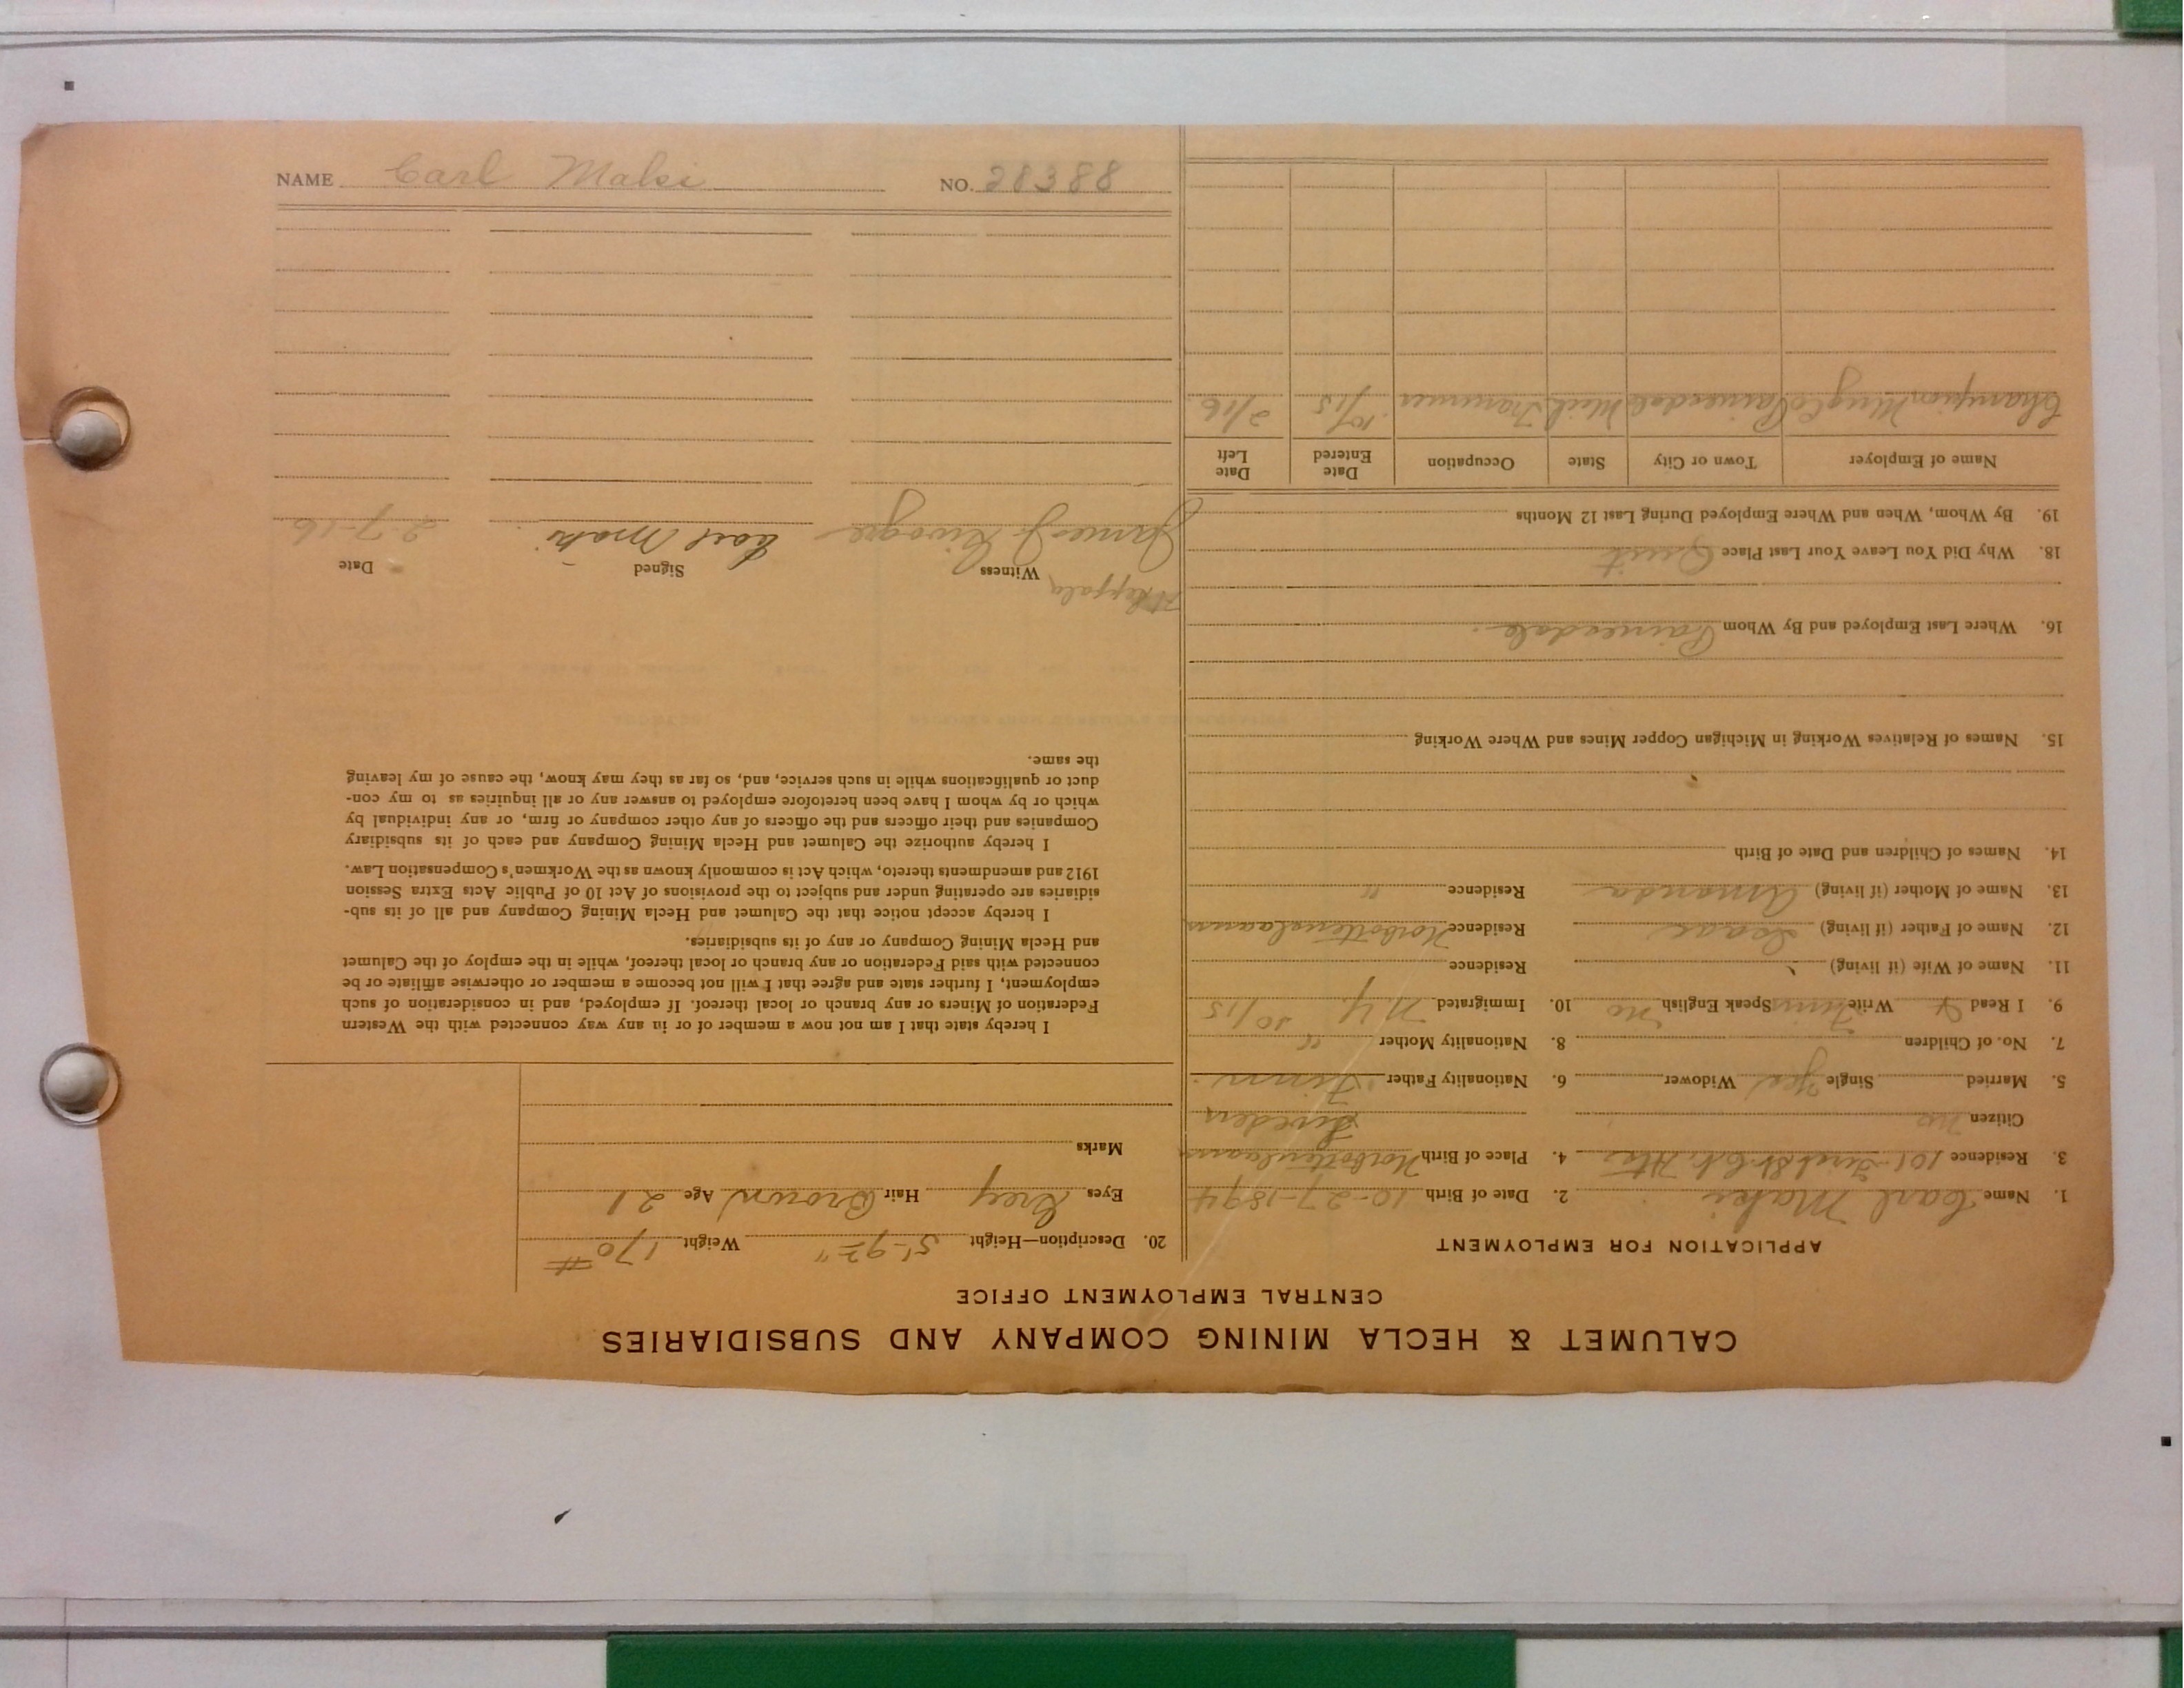 CALUMET & HECLA MINING COMPANY AND SUBSIDIARIES
CENTRAL EMPLOYMENT OFFICE
APPLICATION FOR EMPLOYMENT
1. Name Carl Maki 2. Date of Birth 10-27-1894
3. Residence 101- 4. Place of Birth Norbottenlaans
Citizen no Sweden
5. Married Single Yes Widower 6. Nationality Father Finn
7. No. of Children 8. Nationality Mother "
9. I Read & Write Finn Speak English no 10. Immigrated N.Y. 10/15
11. Name of Wife (if living) Residence
12. Name of Father (if living) Isaac Residence Norbottenlaans
13. Name of Mother (if living) Amanda Residence "
14. Names of Children and Date of Birth
15. Names of Relatives Working in Michigan Copper Mines and Where Working
16. Where Last Employed and By Whom Painesdale.
18. Why Did You Leave Your Last Place Quit
19. By Whom, When and Where Employed During Last 12 Months
Name of Employer Town or City State Occupation Date Entered Date Left
Champion Mng Co Painesdale Mich Trammer 10/15 2/16
20. Description—Height 5'-9½" Weight 170 #
Eyes Grey Hair Brown Age 21
Marks
I hereby state that I am not now a member of or in any way connected with the Western
Federation of Miners or any branch or local thereof. If employed, and in consideration of such
employment, I further state and agree that I will not become a member or otherwise affiliate or be
connected with said Federation or any branch or local thereof, while in the employ of the Calumet
and Hecla Mining Company or any of its subsidiaries.
I hereby accept notice that the Calumet and Hecla Mining Company and all of its sub-
sidiaries are operating under and subject to the provisions of Act 10 of Public Acts Extra Session
1912 and amendments thereto, which Act is commonly known as the Workmen's Compensation Law.
I hereby authorize the Calumet and Hecla Mining Company and each of its subsidiary
Companies and their officers and the officers of any other company or firm, or any individual by
which or by whom I have been heretofore employed to answer any or all inquiries as to my con-
duct or qualifications while in such service, and, so far as they may know, the cause of my leaving
the same.
Witness Signed Date
James J. Carl Maki 2-7-16
NAME Carl Maki NO. 28388